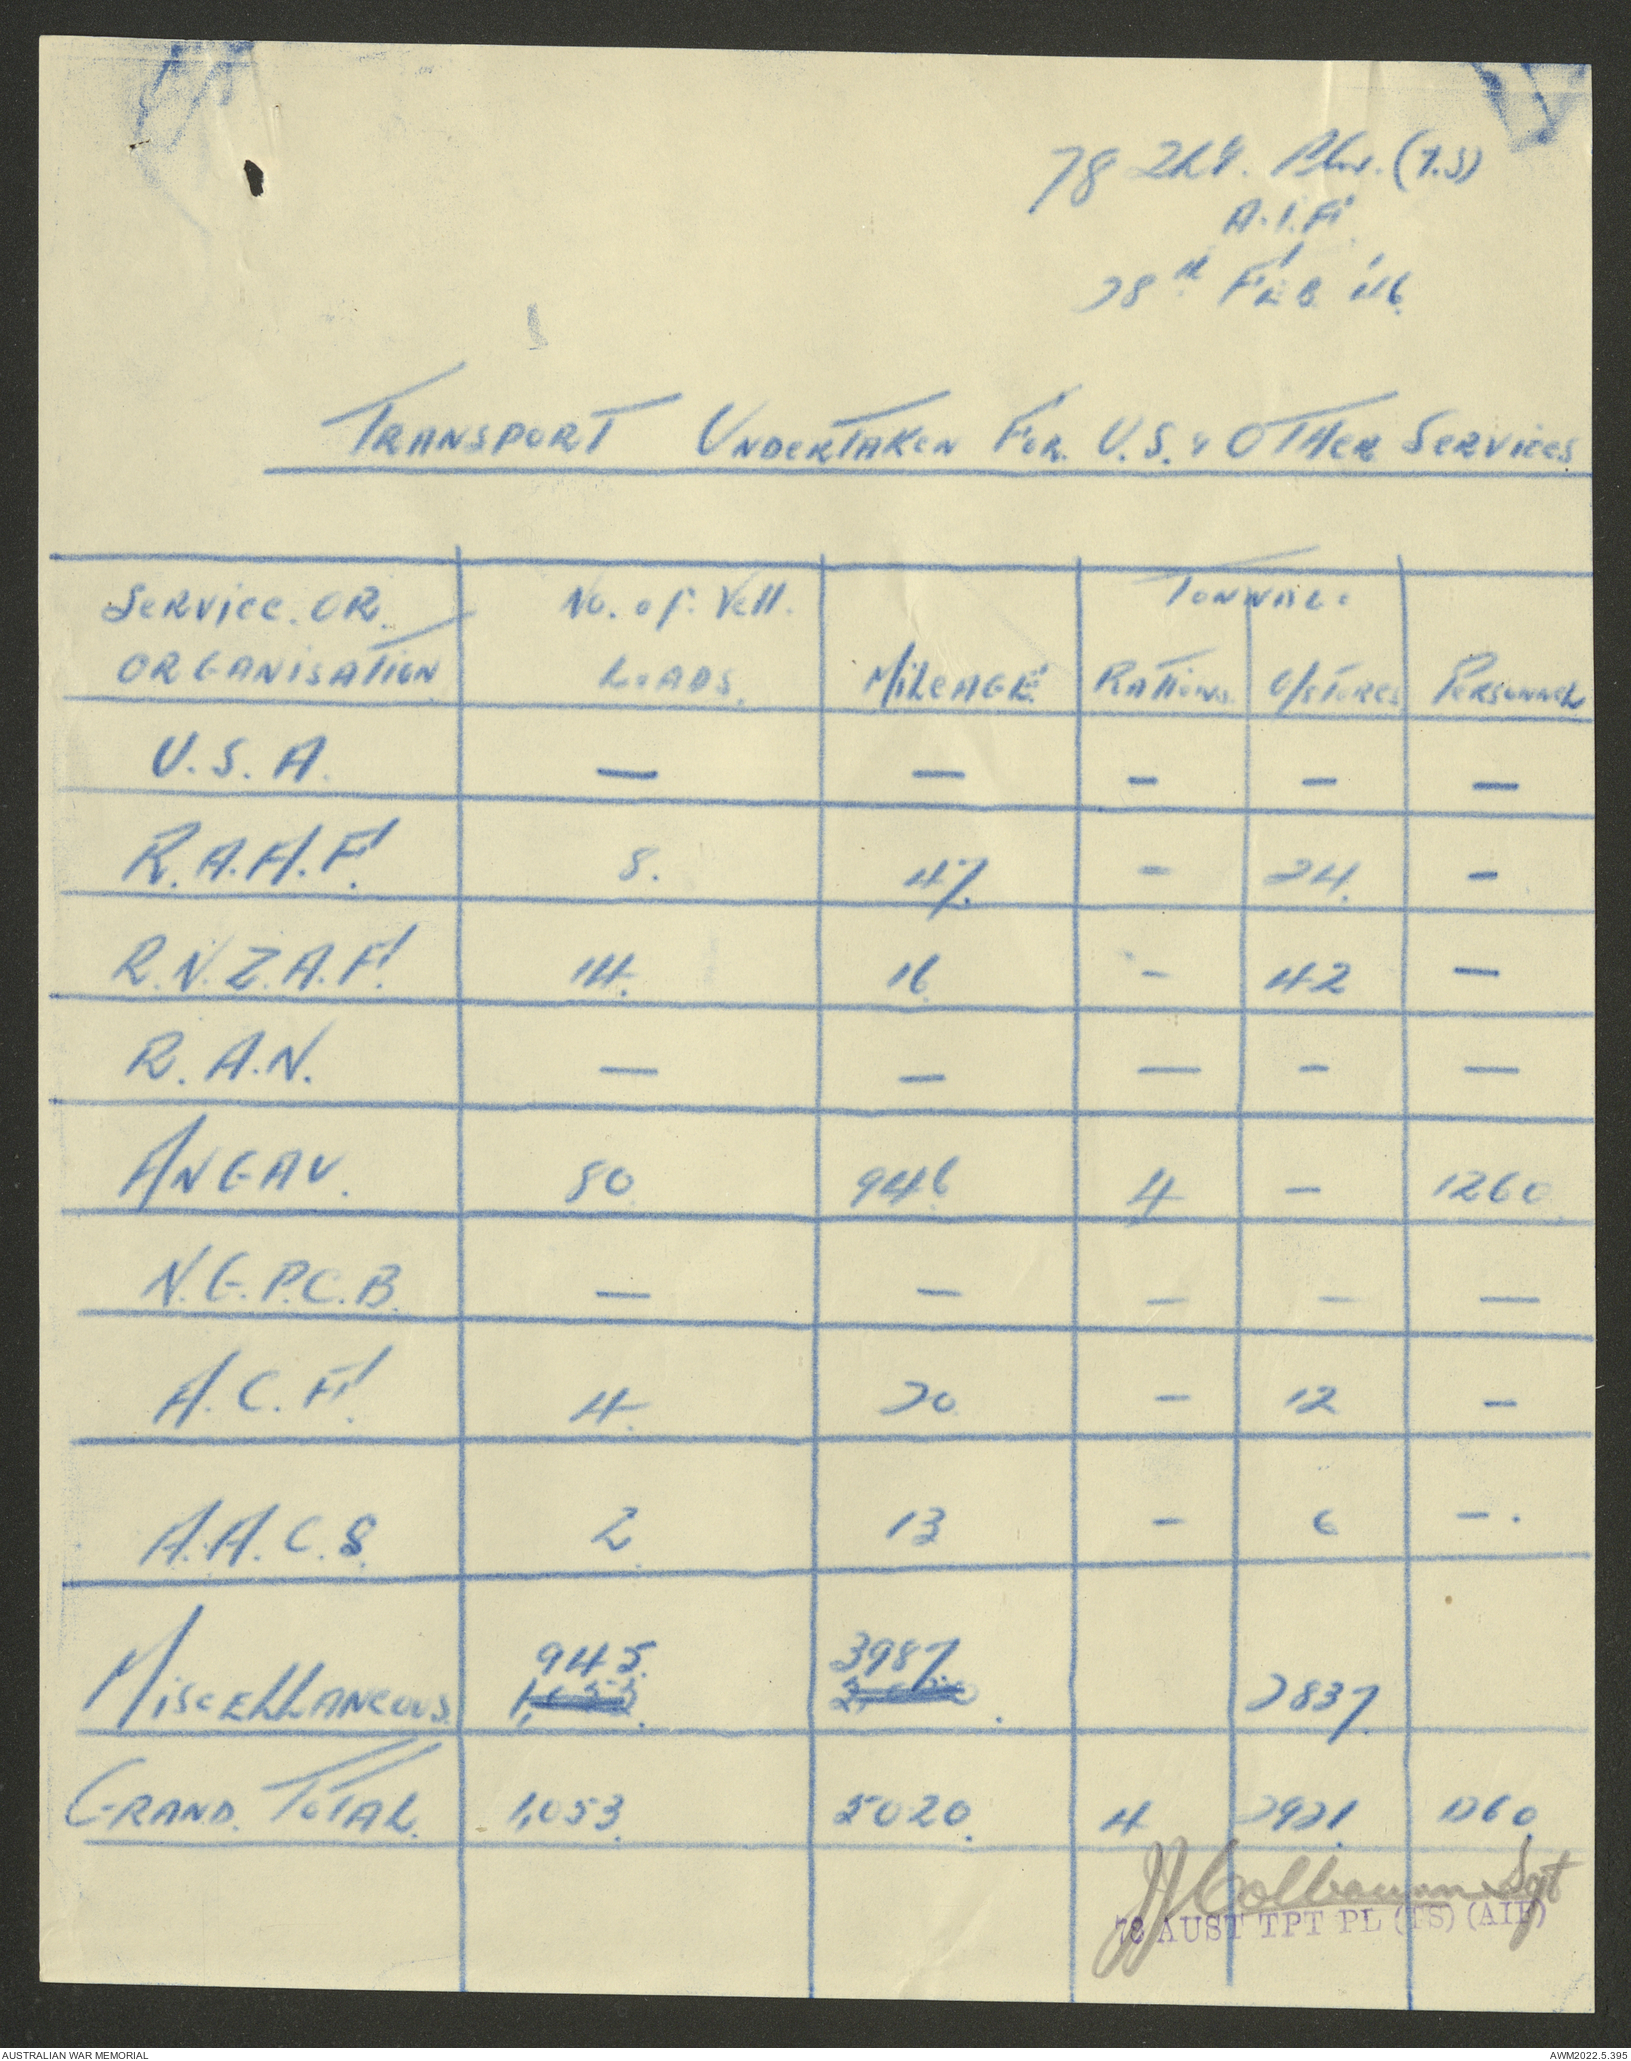 78 Pln. (T.S)
A.I.F.
28th FEB '46.
TRANSPORT UNDERTAKEN FOR U.S. & OTHER SERVICES
SERVICE OR ORGANISATION No. of Veh. LOADS. MILEAGE TONNAGE RATIONS O/STORES PERSONNEL
U.S.A. — — — — —
R.A.A.F. 8. 47. — 24. —
R.N.Z.A.F. 14. 16. — 42 —
R.A.N. — — — — —
ANGAU. 80. 946. 4 — 1260.
N.G.P.C.B. — — — — —
A.C.F. 4. — 12 —
A.A.C.S. 2. 13 — 6 —.
945. 3987.
MISCELLANEOUS. 2837.
GRAND TOTAL. 1,053. 5020. 4 2921. 1260.
Sgt
78 AUST TPT PL (TS) (AIF)
AUSTRALIAN WAR MEMORIAL
AWM2022.5.395